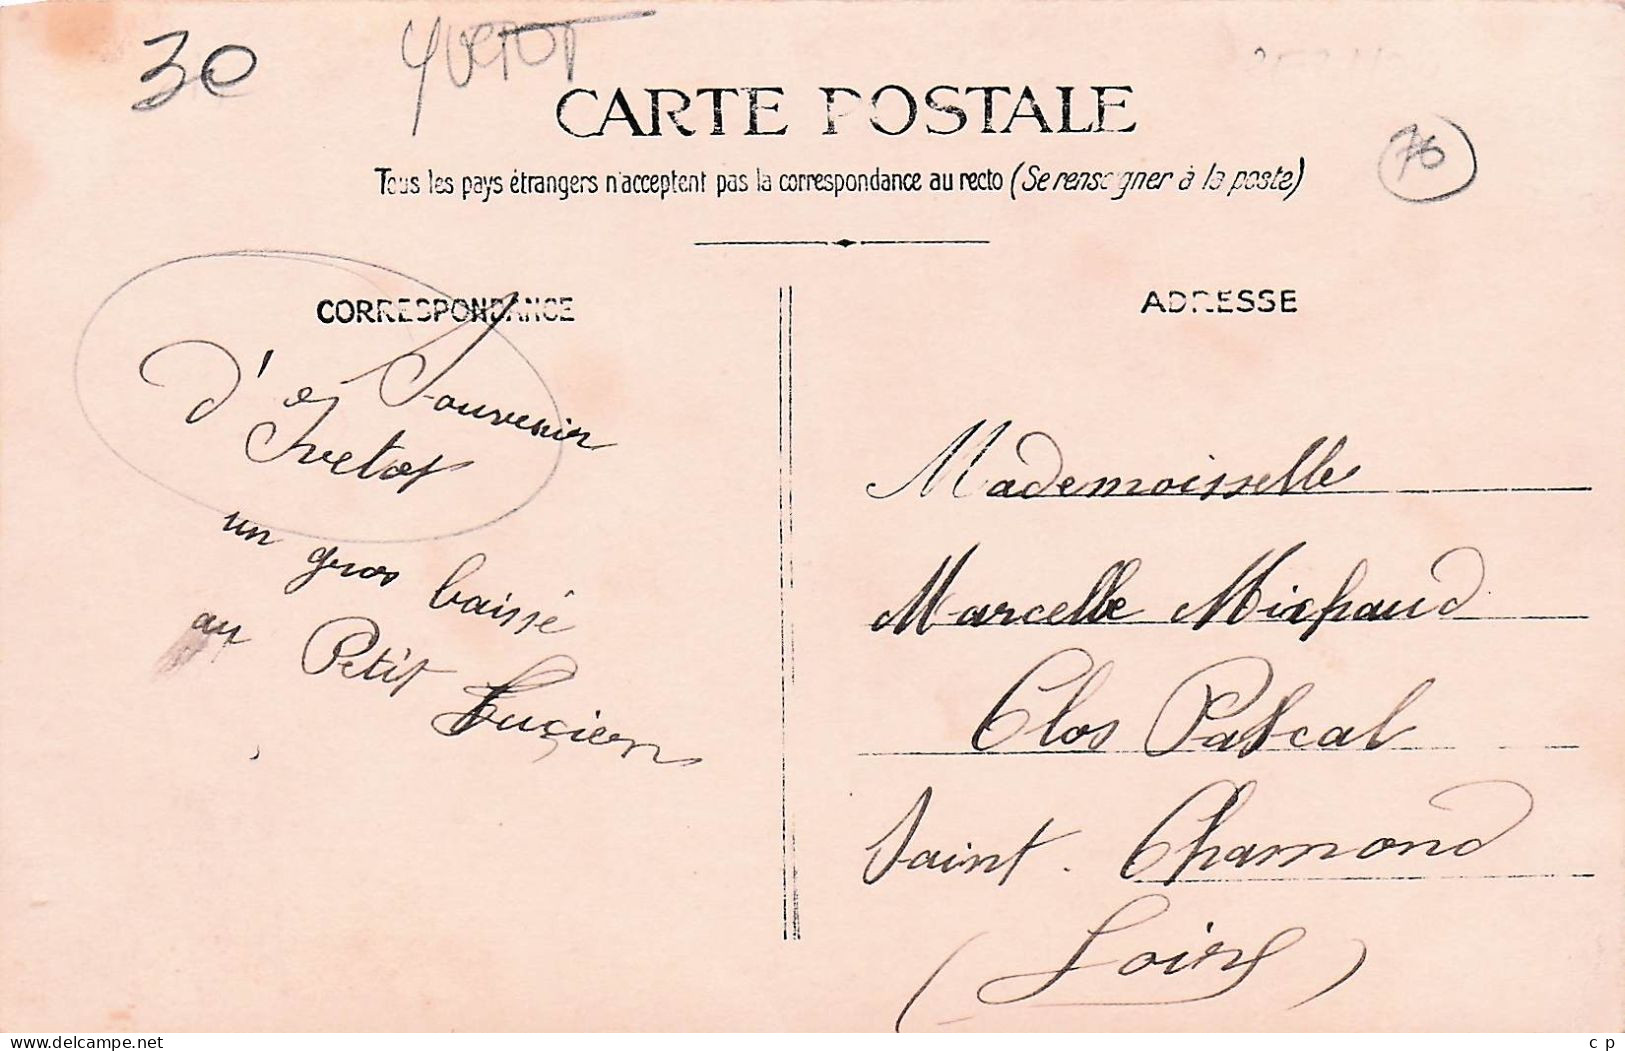 30
Yvetot
CARTE POSTALE
76
Tous les pays étrangers n'acceptent pas la correspondance au recto (Se renseigner à la poste)
CORRESPONDANCE
Souvenir
d'Ivetot
un gros baissé
au Petit Lucien
ADRESSE
Mademoisselle
Marcelle Michaud
Clos Pascal
Saint. Chamond
(Loire)
delcampe.net
c p